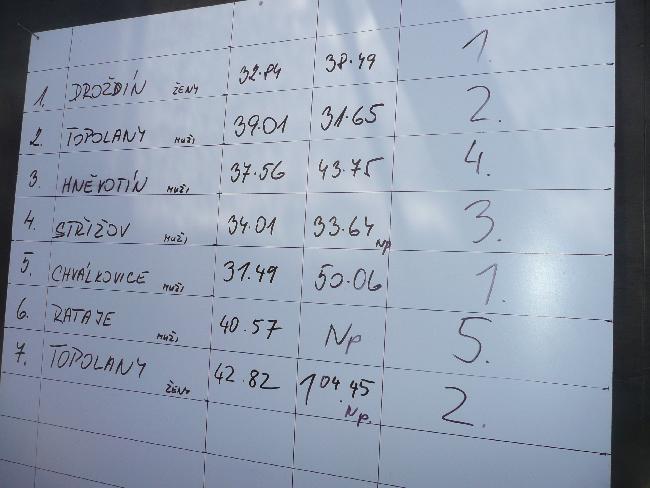 1. DROŽDÍN ŽENY 32.84 38.49 1.
2. TOPOLANY MUŽI 39.01 31.65 2.
3. HNĚVOTÍN MUŽI 37.56 43.75 4.
4. STŘÍŽOV MUŽI 34.01 33.64 Np 3.
5. CHVÁLKOVICE MUŽI 31.49 50.06 1.
6. RATAJE MUŽI 40.57 Np 5.
7. TOPOLANY ŽENY 42.82 1 04.45 Np. 2.